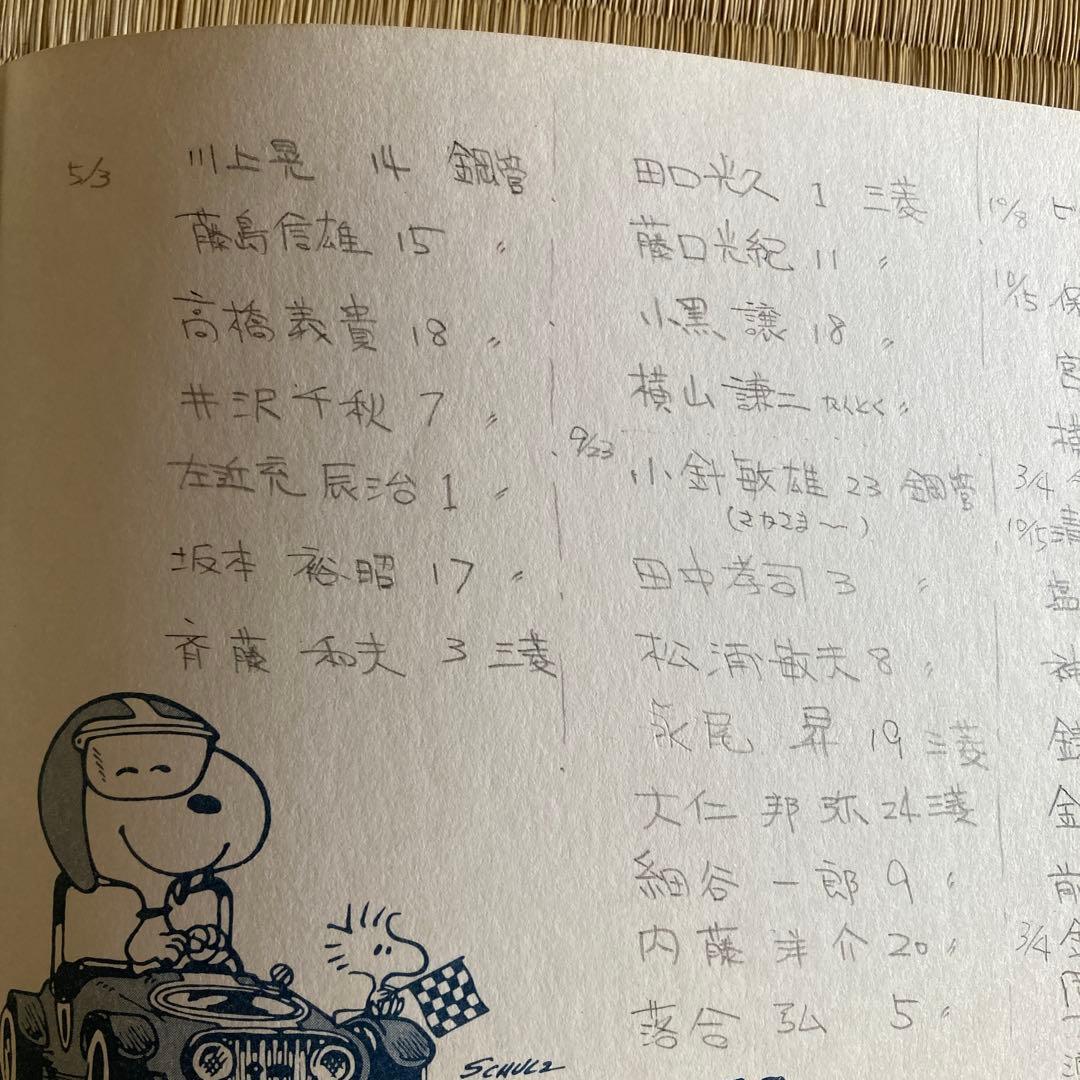 5/3 川上晃 14 鋼管
藤島信雄 15 〃
高橋義貴 18 〃
井沢千秋 7 〃
左近充辰治 1 〃
坂本 裕昭 17 〃
斉藤 和夫 3 三菱
田口光久 1 三菱
藤口光紀 11 〃
小黒 譲 18 〃
横山謙三 かんとく 〃
9/23 小針敏雄 23 鋼管
田中孝司 3 〃
松浦敏夫 8 〃
永尾 昇 19 三菱
大仁 邦弥 24 三菱
細谷 一郎 9 〃
内藤 洋介 20 〃
落合 弘 5 〃
10/8
10/15 保
宮
横
3/4
10/15 清
塩
神
前
3/4 金
SCHULZ